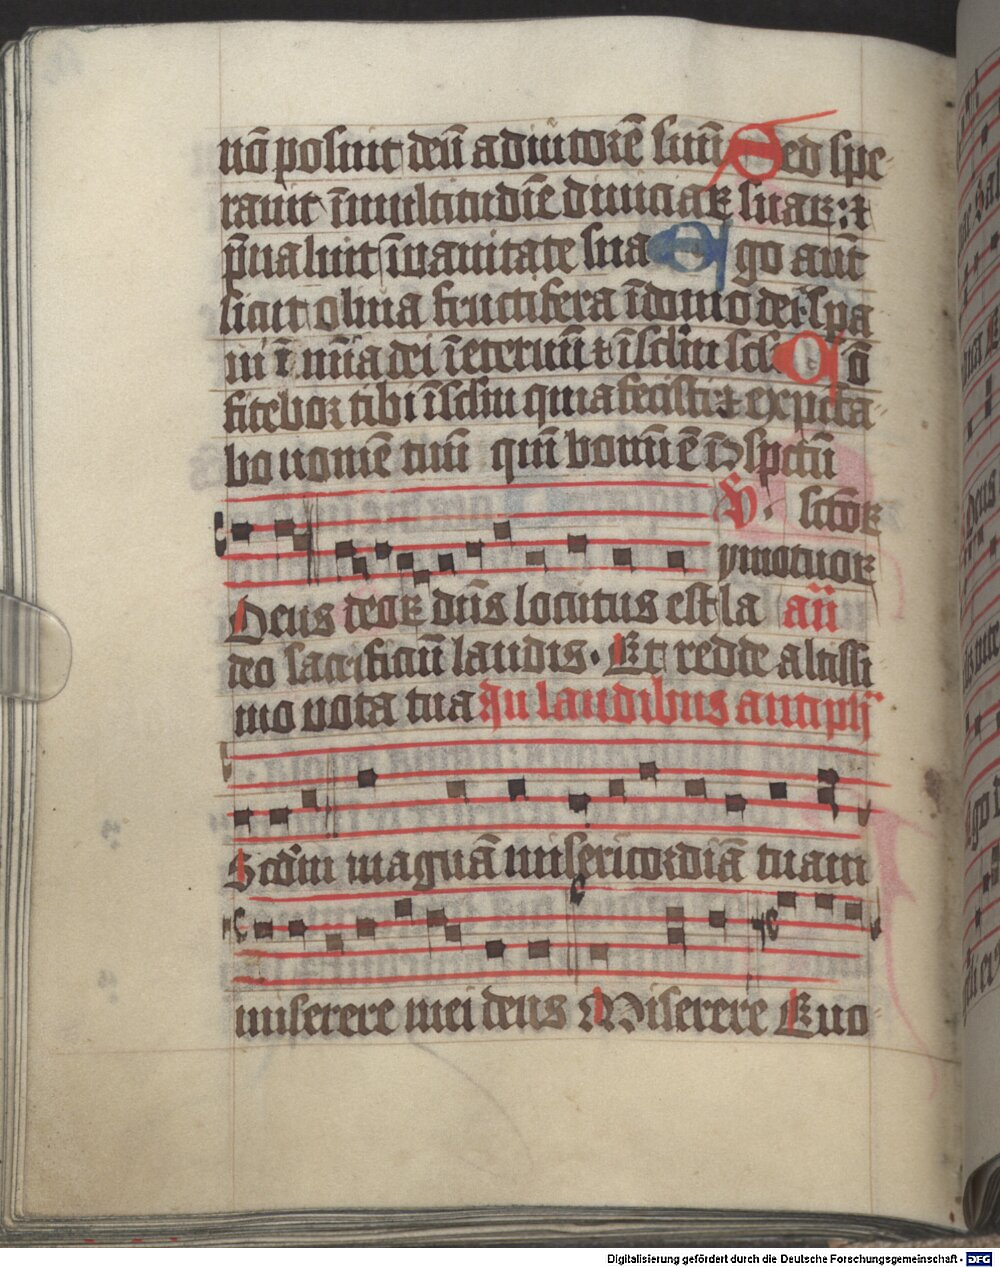 nō posuit deū adiutorē suū Sed spe
rauit ī multitudīe diuiciaꝝ suaꝝ: ⁊
p̄ualuit ī uanitate sua Ego aūt
sicut oliua fructifera ī domo dei spa
ui ī mīa dei ī eternū ⁊ ī sclm scli Cō
fitebor tibi ī sclm quia fecisti ⁊ expecta
bo nomē tuū qm̄ bonū ē ī ꝯspctū
V. sctōꝝ
ymotuoꝝ
Deus deoꝝ dn̄s locutus est la añ
deo sacrificiū laudis. Et redde altissi
mo uota tua In laudibus antiph
Scdm magnā misericordiā tuam
miserere mei deus Miserere Euo
Digitalisierung gefördert durch die Deutsche Forschungsgemeinschaft - DFG